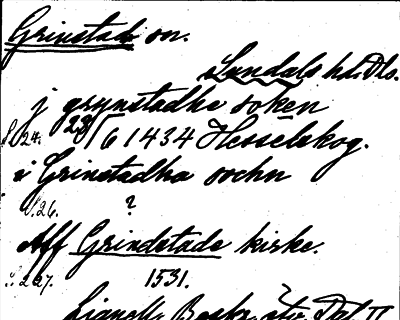 Grinstads sn.
Sundals hd. Dls.
j grynstadha soken
S. 24. 23/6 1434 Hesselskog.
i Grinstadha sochn
S. 26. ?
Aff Grindstade kirke.
S. 227. 1531.
Dal II